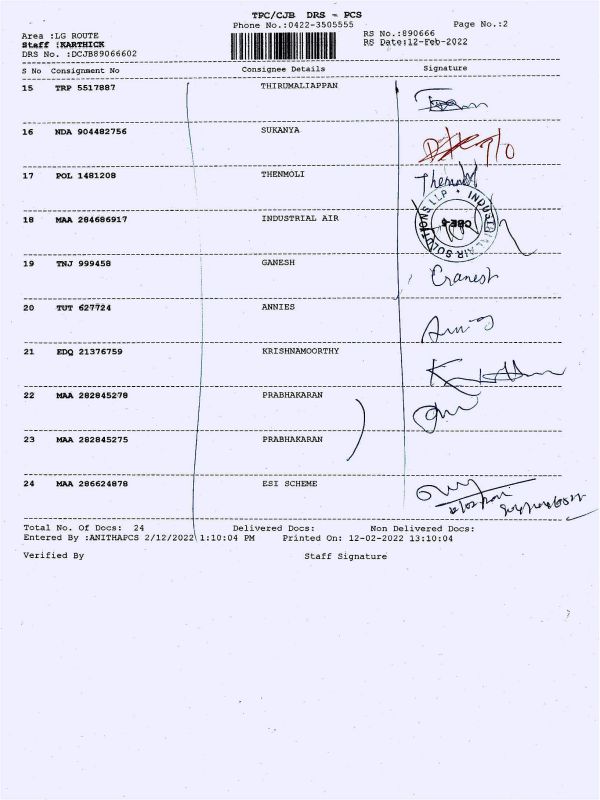 TPC/CJB DRS - PCS
Phone No.:0422-3505555
Page No.:2
Area :LG ROUTE
RS No.:890666
Staff :KARTHICK
RS Date:12-Feb-2022
DRS No. :DCJB89066602
S No Consignment No Consignee Details Signature
15 TRP 5517887 THIRUMALIAPPAN
16 NDA 904482756 SUKANYA
17 POL 1481208 THENMOLI
18 MAA 284686917 INDUSTRIAL AIR
INDUSTRIAL AIR SOLUTIONS LLP
CBE-6
19 TNJ 999458 GANESH
20 TUT 627724 ANNIES
21 EDQ 21376759 KRISHNAMOORTHY
22 MAA 282845278 PRABHAKARAN
23 MAA 282845275 PRABHAKARAN
24 MAA 286624878 ESI SCHEME
Total No. Of Docs: 24 Delivered Docs: Non Delivered Docs:
Entered By :ANITHAPCS 2/12/2022 1:10:04 PM Printed On: 12-02-2022 13:10:04
Verified By Staff Signature